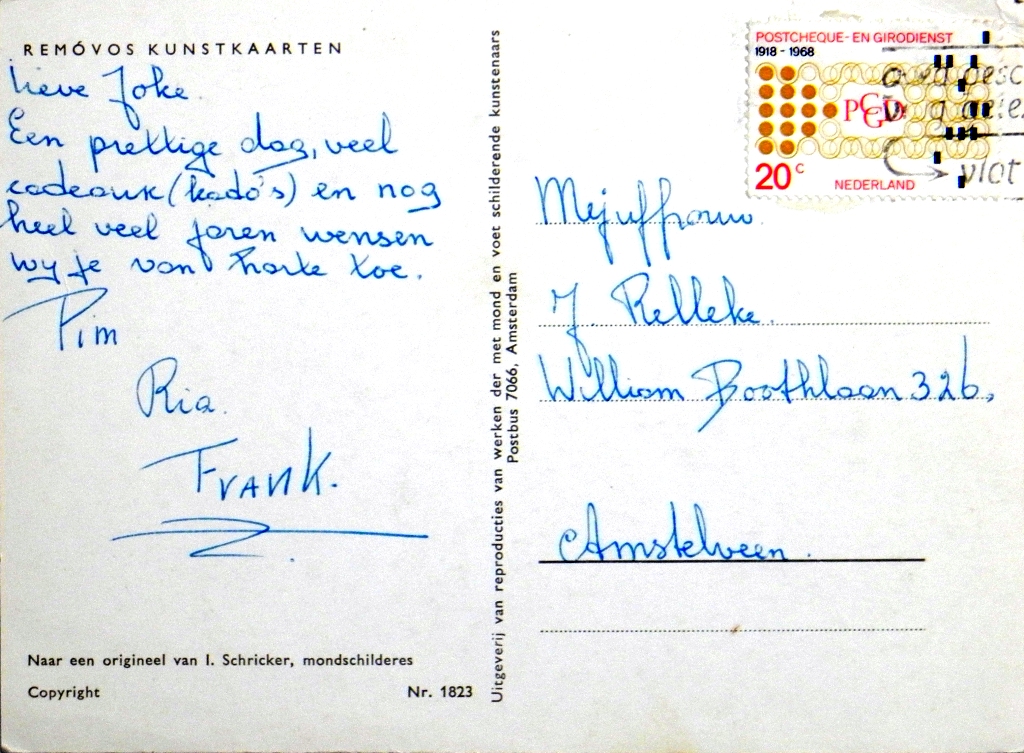 REMÓVOS KUNSTKAARTEN
Lieve Joke
Een prettige dag, veel
cadeaux (kado's) en nog
heel veel jaren wensen
wy je van harte toe.
Pim
Ria.
FRANK.
Naar een origineel van I. Schricker, mondschilderes
Copyright Nr. 1823
Uitgeverij van reproducties van werken der met mond en voet schilderende kunstenaars
Postbus 7066, Amsterdam
POSTCHEQUE- EN GIRODIENST
1918 - 1968
PCGD
20c
NEDERLAND
vlot
Mejuffrouw
J. Relleke.
William Boothlaan 32b,
Amstelveen.